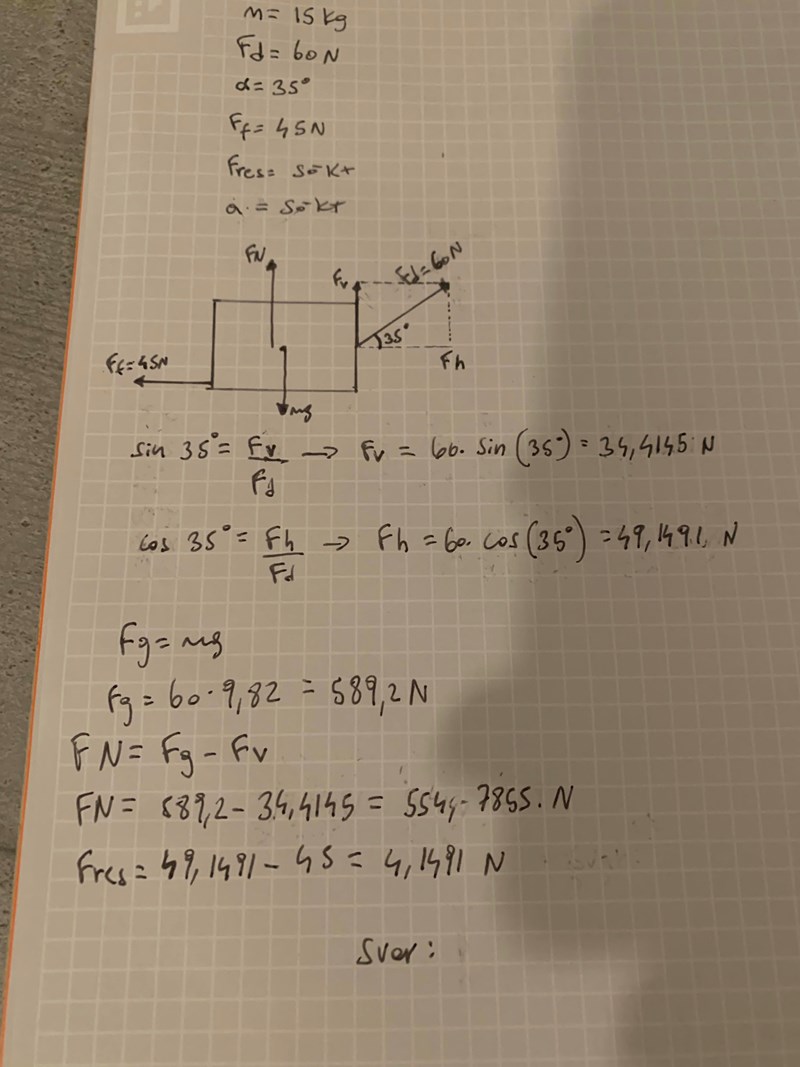 m = 15 kg
Fd = 60 N
α = 35°
Ff = 45 N
Fres = Sökt
a = Sökt
FN
Fv
Fd = 60 N
35°
Ff = 45N
Fh
mg
sin 35° = Fv/Fd → Fv = 60 · sin (35°) = 34,4145 N
cos 35° = Fh/Fd → Fh = 60 · cos (35°) = 49,1491 N
Fg = mg
Fg = 60 · 9,82 = 589,2 N
FN = Fg - Fv
FN = 589,2 - 34,4145 = 554,7855 N
Fres = 49,1491 - 45 = 4,1491 N
Svar: